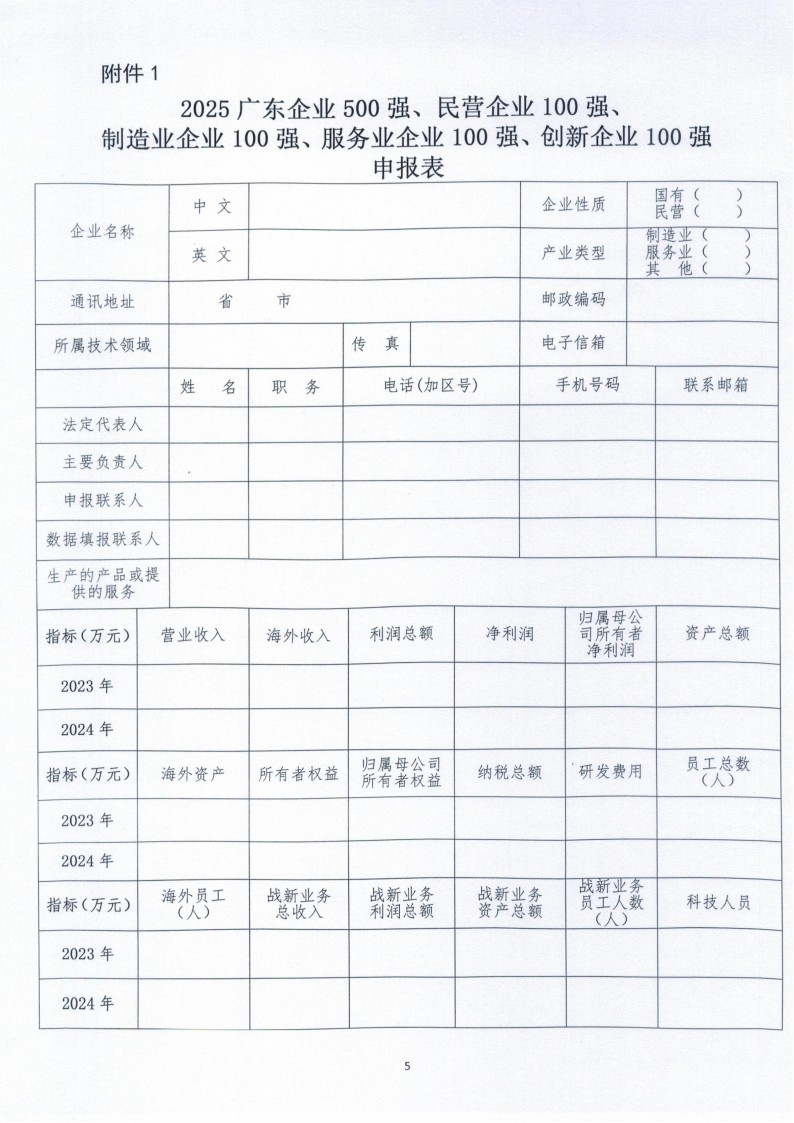 附件 1
2025 广东企业 500 强、民营企业 100 强、
制造业企业 100 强、服务业企业 100 强、创新企业 100 强
申报表
企业名称 中 文 企业性质 国有（ ）
民营（ ）
英 文 产业类型 制造业（ ）
服务业（ ）
其 他（ ）
通讯地址 省 市 邮政编码
所属技术领域 传 真 电子信箱
姓 名 职 务 电话(加区号) 手机号码 联系邮箱
法定代表人
主要负责人
申报联系人
数据填报联系人
生产的产品或提
供的服务
指标(万元) 营业收入 海外收入 利润总额 净利润 归属母公
司所有者
净利润 资产总额
2023 年
2024 年
指标(万元) 海外资产 所有者权益 归属母公司
所有者权益 纳税总额 研发费用 员工总数
（人）
2023 年
2024 年
指标(万元) 海外员工
（人） 战新业务
总收入 战新业务
利润总额 战新业务
资产总额 战新业务
员工人数
（人） 科技人员
2023 年
2024 年
5